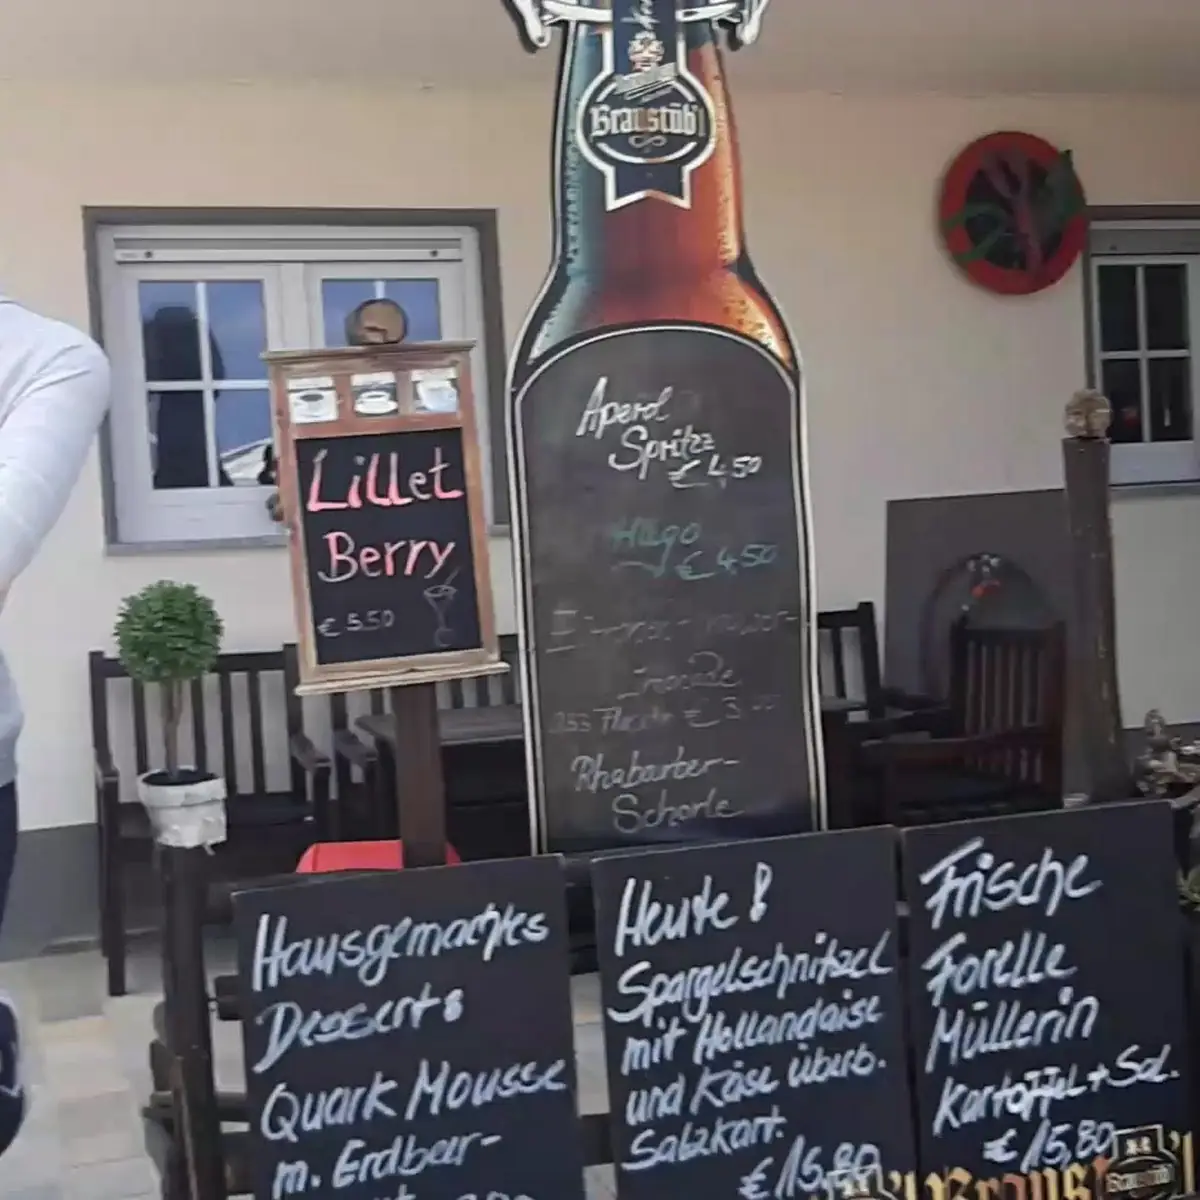 Braustüb'l
Aperol
Spritzz
€ 4,50
Hugo
€ 4,50
Limonade
0,33 Flasche €
Rhabarber-
Schorle
Lillet
Berry
€ 5.50
Hausgemachtes
Dessert:
Quark Mousse
m. Erdbeer-
Heute!
Spargelschnitzel
mit Hollandaise
und Käse überb.
Salzkart.
€ 15,80
Frische
Forelle
Müllerin
Kartoffel + Sal.
€ 15,80
Braustüb'l